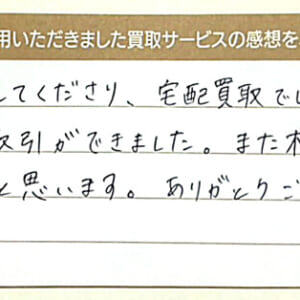 用いただきました買取サービスの感想を
してくださり、宅配買取でし
取引ができました。また
と思います。ありがとうご